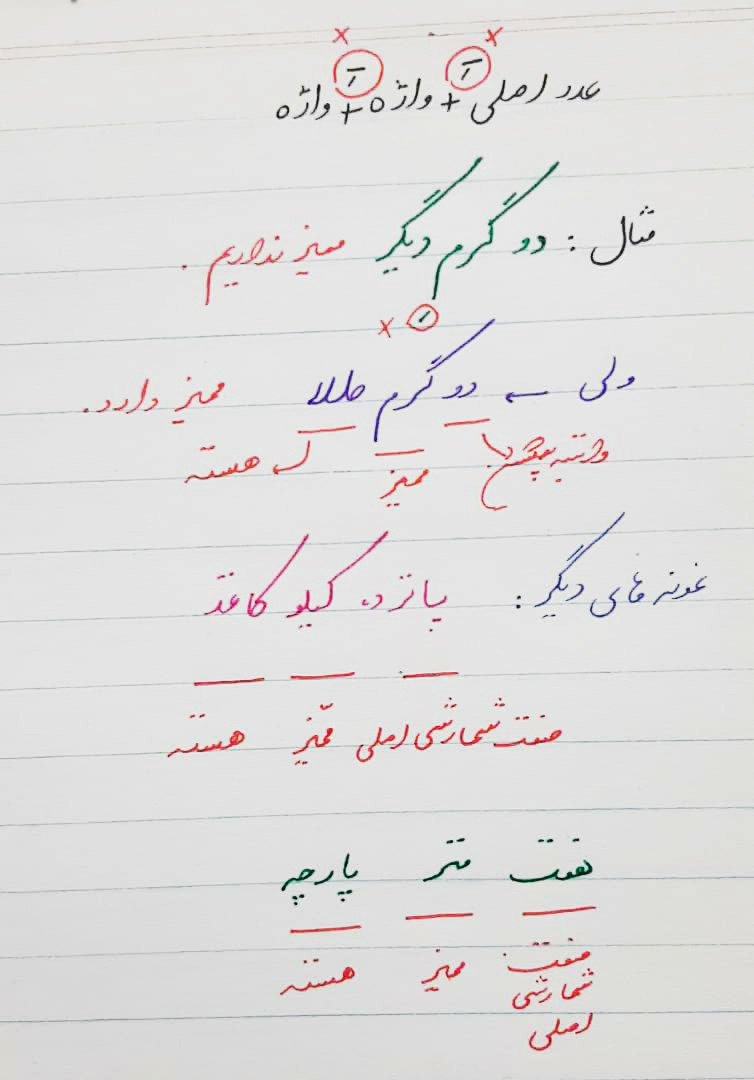 عدد اصلی + واژه + واژه
مثال : دو گرم دیگر ممیز نداریم .
ولی ← دو گرم طلا ممیز دارد.
وابسته پیشین ممیز هسته
نمونه های دیگر : پانزده کیلو کاغذ
صفت شمارشی اصلی ممیّز هسته
هفت متر پارچه
صفت شمارشی اصلی ممیز هسته